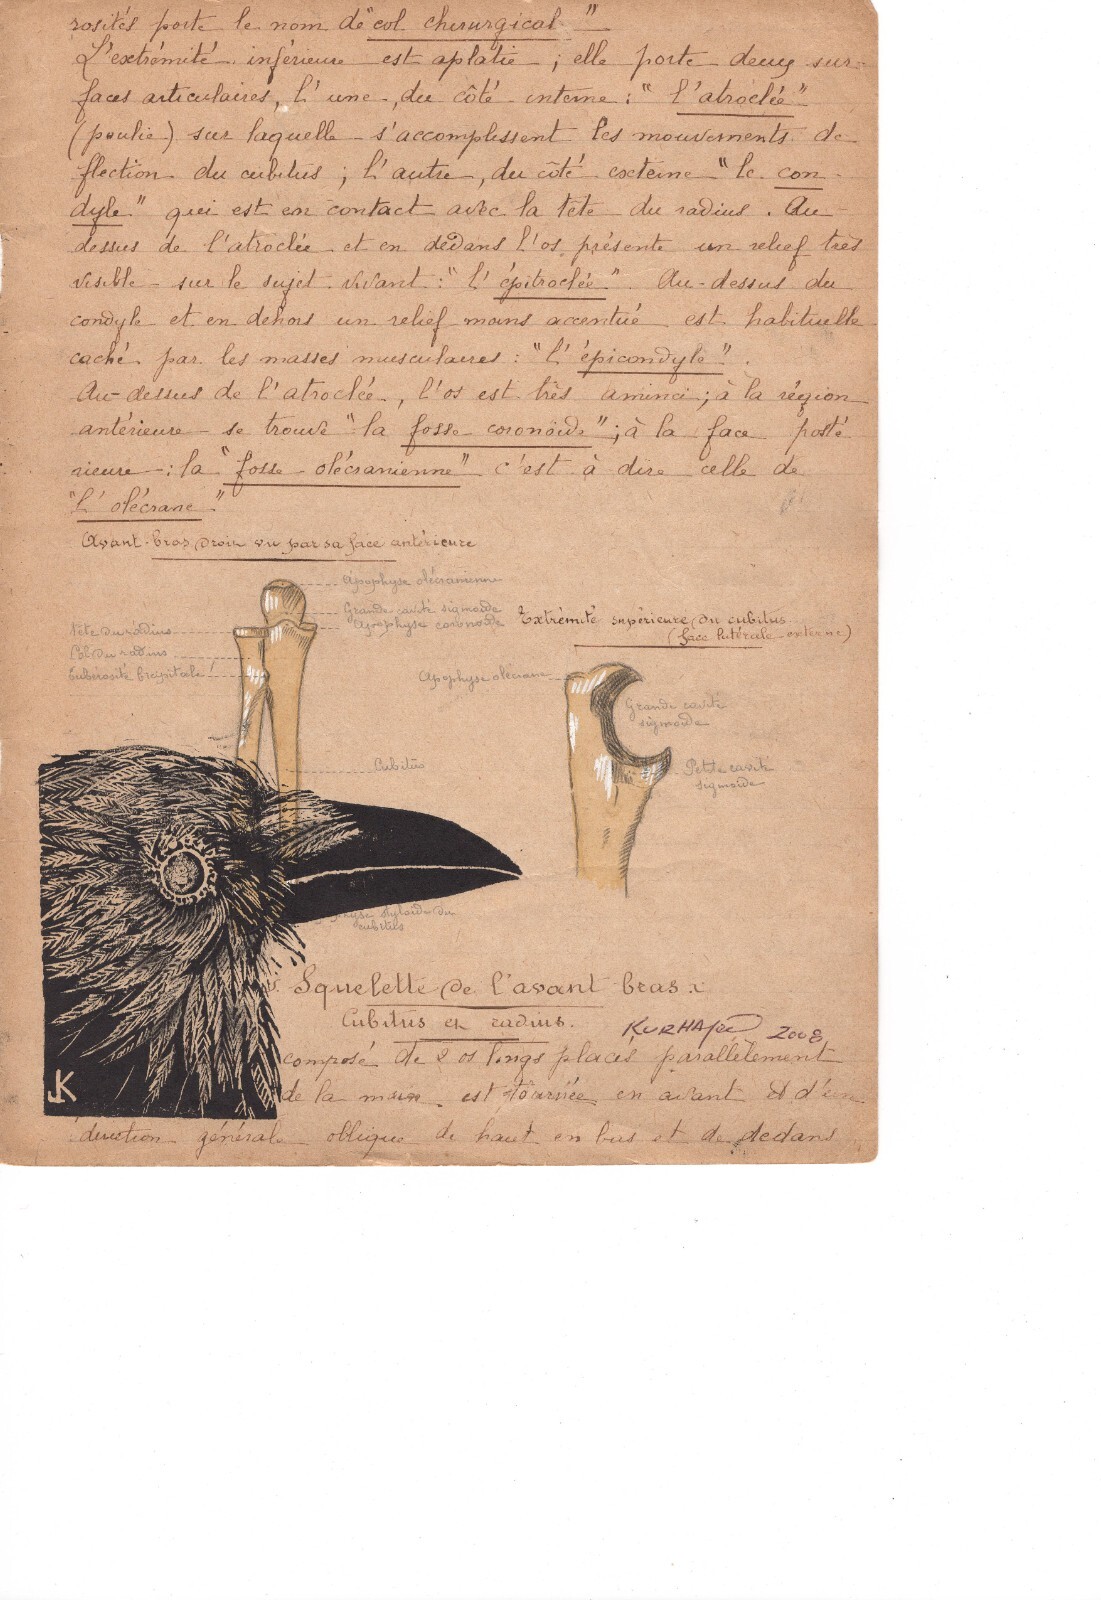 rosités porte le nom de "col chirurgical"
L'extrémité inférieure est aplatie ; elle porte deux sur-
faces articulaires, l'une, du côté interne : "l'atroclée"
(poulie) sur laquelle s'accomplissent les mouvements de
flection du cubitus ; l'autre, du côté externe "le con-
dyle" qui est en contact avec la tête du radius. Au-
dessus de l'atroclée et en dedans l'os présente un relief très
visible sur le sujet vivant : "l'épitroclée". Au-dessus du
condyle et en dehors un relief moins accentué est habituelle
caché par les masses musculaires : "l'épicondyle".
Au-dessus de l'atroclée, l'os est très aminci ; à la région
antérieure se trouve "la fosse coronoïde" ; à la face posté
rieure : la "fosse olécranienne" c'est à dire celle de
"l'olécrane"
Avant-bras droit vu par sa face antérieure
Apophyse olécranienne
Grande cavité sigmoïde
Apophyse coronoïde
Tête du radius
Col du radius
Tubérosité bicipitale
Cubitus
Extrémité supérieure du cubitus
(face latérale-externe)
Apophyse olécrane
Grande cavité
sigmoïde
Petite cavité
sigmoïde
styloïde du
cubitus
Squelette de l'avant bras :
Cubitus et radius.
KURHAJEC 2008
composé de 2 os longs placés parallèlement
de la main est tournée en avant et d'un
direction générale oblique de haut en bas et de dedans
JK